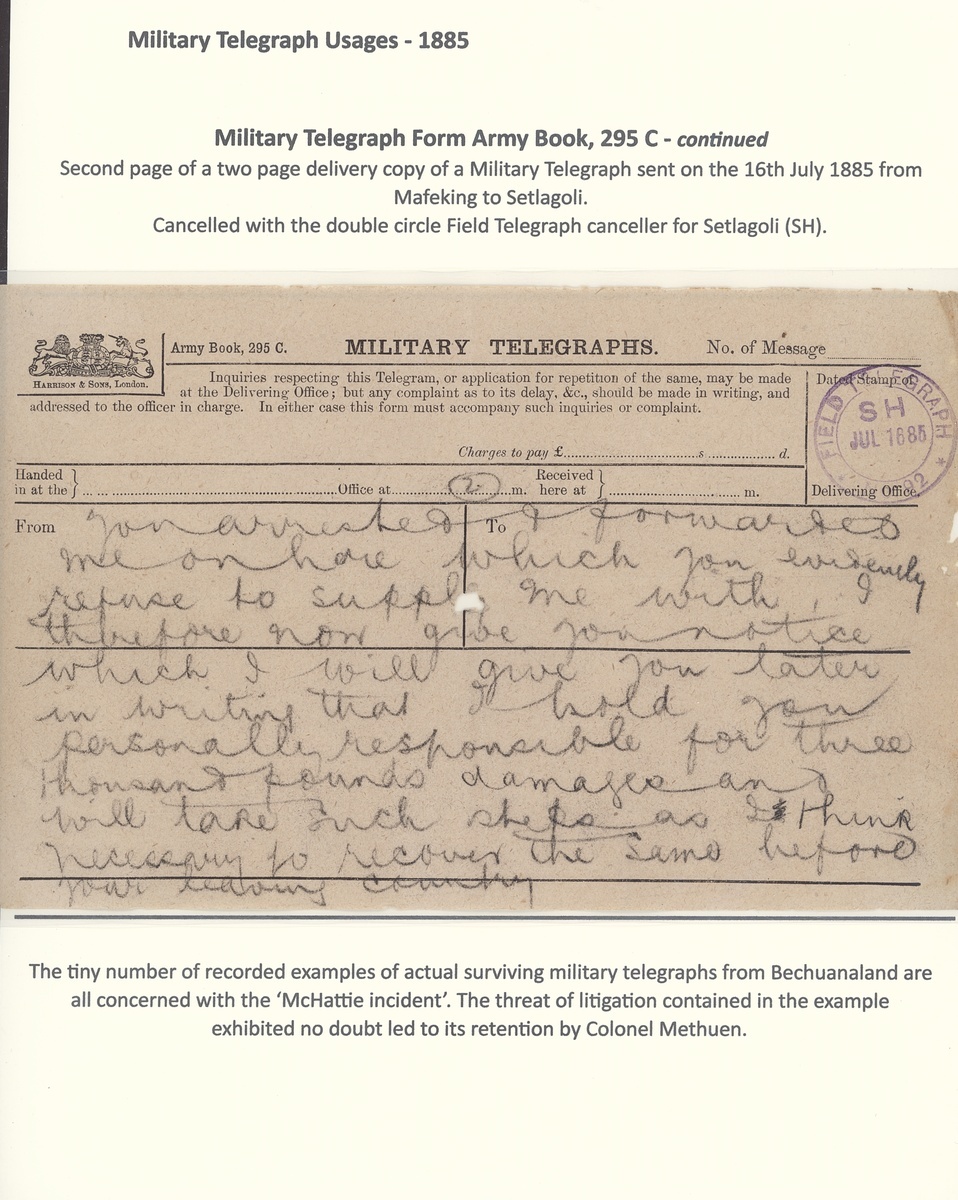 Military Telegraph Usages - 1885
Military Telegraph Form Army Book, 295 C - continued
Second page of a two page delivery copy of a Military Telegraph sent on the 16th July 1885 from
Mafeking to Setlagoli.
Cancelled with the double circle Field Telegraph canceller for Setlagoli (SH).
HARRISON & SONS, London.
Army Book, 295 C.
MILITARY TELEGRAPHS.
No. of Message
Inquiries respecting this Telegram, or application for repetition of the same, may be made
at the Delivering Office; but any complaint as to its delay, &c., should be made in writing, and
addressed to the officer in charge. In either case this form must accompany such inquiries or complaint.
Charges to pay £ s d.
Dated Stamp of
FIELD TELEGRAPH
SH
JUL 1685
Delivering Office.
Handed in at the } Office at (2) m. Received here at } m.
From To
you arrested & forwarded
me on here which you evidently
refuse to supply me with, I
therefore now give you notice
which I will give you later
in writing that I hold you
personally responsible for three
thousand pounds damages and
will take such steps as I think
necessary to recover the same before
your leaving country
The tiny number of recorded examples of actual surviving military telegraphs from Bechuanaland are
all concerned with the ‘McHattie incident’. The threat of litigation contained in the example
exhibited no doubt led to its retention by Colonel Methuen.